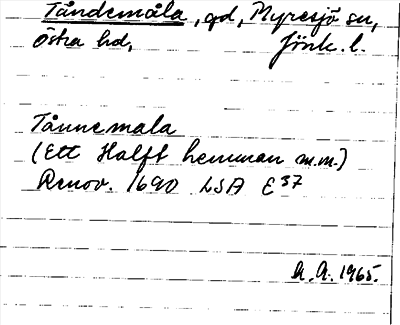 Tåndemåla, gd, Myresjö sn,
Östra hd, Jönk. l.
Tånnemala
(Ett Halft hemman m.m.)
Renov. 1690 LSA E37
A.A. 1965.